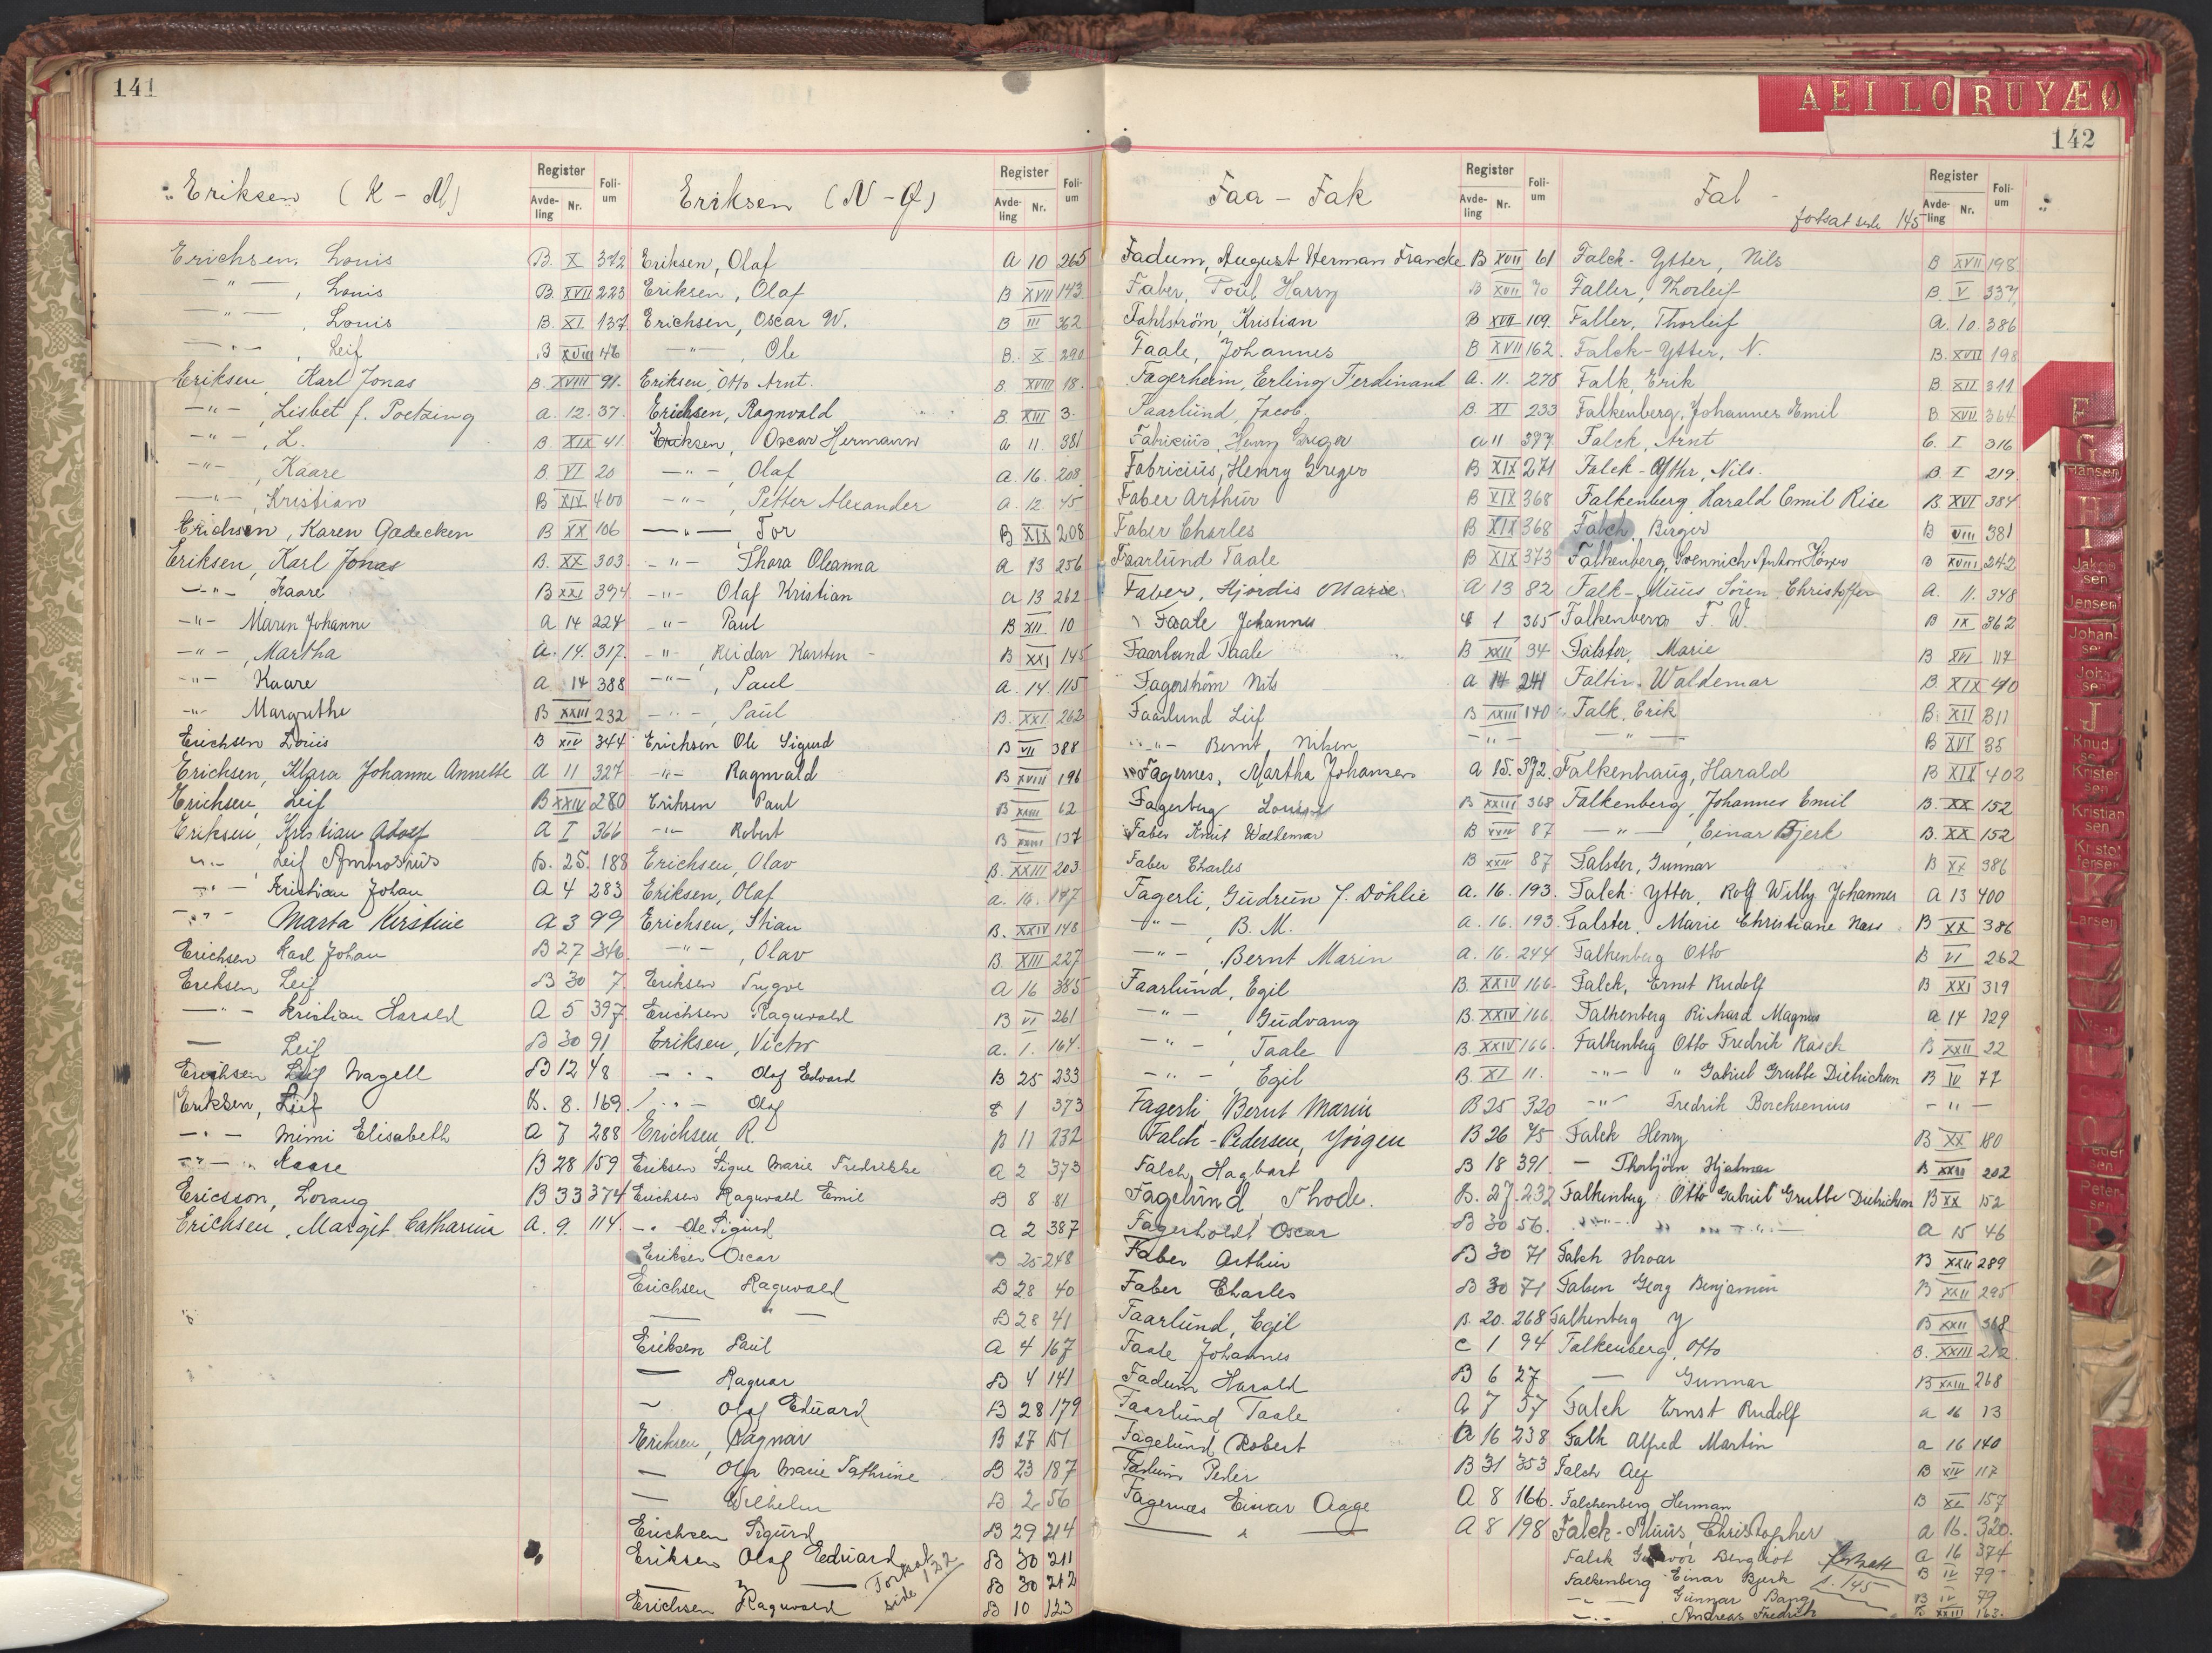 141
Eriksen (K - M)
Register
Avde-ling Nr.
Foli-um
Erichsen, Louis B. X 372
-"- , Louis B. XVII 223
-"- , Louis B. XI 137
-"- , Leif B XVIII 46
Eriksen, Karl Jonas B. XVIII 91.
-"- , Lisbet f. Poetzing a. 12. 37.
-"- , L. B. XIX 41
-"- , Kaare B. VI 20
-"- , Kristian B XIX 400
Erichsen, Karen Gædecken B XX 106
Eriksen, Karl Jonas B. XX 303
-"- , Kaare B XXI 394
-"- Maren Johanne a 14 224
-"- , Martha a. 14. 317.
-"- Kaare a 14 388
-"- Margrethe B XXIII 232
Erichsen Louis B XIV 344
Erichsen, Klara Johanne Annette A 11 327
Erichsen, Leif B XXIV 280
Eriksen, Kristian Adolf A I 366
-"- , Leif Ambrosius B. 25. 188
-"- Kristian Johan A 4 283
-"- Marta Kirstine A 3 99
Erichsen Karl Johan B 27 346
Eriksen Leif B 30 7
-"- Kristian Harald A 5 397
— Leif B 30 91
Erichsen Leif Wagell B 12 48
Eriksen, Leif B. 8. 169
-"- Mimi Elisabeth A 7 288
-"- Kaare B 28 159
Ericsson, Lorang B 33 374
Erichsen, Margit Catharina A. 9. 114.
Eriksen (N - Ø)
Register
Avde-ling Nr.
Foli-um
Eriksen, Olaf a 10 265
Eriksen, Olaf B XVII 143
Erichsen, Oscar W. B III 362
-"- , Ole B. X 290
Eriksen, Otto Arnt. B XVIII 18.
Erichsen, Ragnvald B XIII 3.
Eriksen, Oscar Hermann a 11 381
-"- , Olaf a. 16. 208
-"- , Petter Alexander a. 12 45
-"- , Tor B XIX 208
-"- Thora Oleanna a 13 256
-"- Olaf Kristian a 13 262
-"- Paul B XII. 10
-"- , Reidar Karsten B XXI 145
-"- , Paul a. 14. 115
-"- , Paul B. XXI 262
Erichsen Ole Sigurd B VII 388
-"- Ragnvald B XVIII 196
Eriksen Paul B XXIII 62
-"- Robert B XXIII 137
Erichsen, Olav B. XXIII 203
Eriksen, Olaf a. 16. 197
Erichsen, Stian B. XXIV 148
-"- , Olav B. XIII 227
Eriksen Trygve a 16 385
Erichsen Ragnvald B VI 261
Eriksen, Victor a. 1. 164.
-"- Olaf Edvard B 25 233
-"- Olaf C 1 373
Erichsen, R. B 11 232
Eriksen Signe Marie Fredrikke a 2 373
Erichsen Ragnvald Emil B 8 81
-"- Ole Sigurd a 2 387
Eriksen Oscar B 25 248
Erichsen Ragnvald B 28 40
— " — B 28 41
Eriksen Paul a 4 167
— Ragnar B 4 141
— Olaf Edvard B 28 179
Eriksen, Ragnar B 27 151
— Olga Marie Cathrine B 23 187
— Wilhelm B 2 56
Erichsen Sigurd B 29 214
Eriksen Olaf Edvard B 30 211
— " — B 30 212
Erichsen Ragnvald B 10 123
Fortsat side 132
AEILORUYÆØ
142
Faa - Fak
Register
Avde-ling Nr.
Foli-um
Fadum, August Herman Francke B XVII 61
Faber, Poul Harry B XVII 70
Fahlström, Kristian B XVII 109.
Faale, Johannes B XVII 162.
Fagerheim, Erling Ferdinand a. 11. 278
Faarlund, Jacob. B. XI 233
Fabricius, Henry Greger a 11 377
Fabricius, Henry Greger B XIX 271
Faber Arthur B XIX 368
Faber Charles B XIX 368
Faarlund Taale B XIX 373
Faber, Hjördis Marie a 13 82
Faale Johannes C 1 365
Faarlund Taale B XXII 34
Fagerström Nils a 14 241
Faarlund Leif B XXIII 140
-"- Bernt Nilsen -"-
Fagernes, Martha Johansen a 15. 372.
Fagerberg Louise B XXIII 368
Faber Knut Waldemar B XXIV 87
Faber Charles B XXIV 87
Fagerli, Gudrun f. Döhlie a. 16. 193.
-"- , B. M. a. 16. 193
-"- , Bernt Marin a. 16. 244
Faarlund, Egil B. XXIV 166.
-"- , Gudvang B. XXIV 166
-"- , Taale B. XXIV 166.
-"- , Egil B. XI 11.
Fagerli, Bernt Marin B 25 320
Falch-Pedersen, Yrigen B 26 75
Falch, Hagbart B 18 391
Fagelund, Thode. B. 27. 232
Fagerholdt Oscar B 30 56.
Faber Arthur B 30 71
Faber Charles B 30 71
Faarlund, Egil B. 20. 268
Faale Johannes C 1 94
Fadum Harald B 6 27
Faarlund Taale A 7 37
Fagelund Robert B 16 238
Fadum Peder B 31 353
Fagernæs Einar Aage A 8 166.
— " — A 8 198
Fal -
fortsat side 145
Register
Avde-ling Nr.
Foli-um
Falck-Ytter, Nils B XVII 198
Faller, Thorleif B. V 337
Faller, Thorleif A. 10. 386
Falck-Ytter, N. B. XVII 198
Falk, Erik B. XII 311
Falkenberg, Johannes Emil B XVII 364
Falck, Arnt C. I 316
Falck-Ytter, Nils. B. I 219
Falkenberg, Harald Emil Rise B. XVI 384
Falch, Birger B VIII 381
Falkenberg, Svennich Anton Höyer B XVIII 242
Falk-Muus Sören Christoffer A. 11. 348
Falkenberg F. W. B IX 362
Falster, Marie B XVI 117
Faltin Waldemar B. XIX 40
Falk, Erik B. XII 311
-"- B XVI 35
Falkenhaug, Harald B XIX 402
Falkenberg, Johannes Emil B. XX 152
-"- , Einar Bjerk B. XX 152
Falster, Gunnar B XX 386
Falck-Ytter, Rolf Willy Johannes A 13 400
Falster, Marie Christiane Næss B XX 386
Falkenberg Otto B VI 262
Falck, Ernst Rudolf B XXI 319
Falkenberg Richard Magnus a 14 129
Falkenberg Otto Fredrik Rasch B XXII 22
-"- " Gabriel Grubbe Dietrichson B IV 77
-"- Fredrik Borchsenius -"-
Falck Henry B XX 180
— Thorbjörn Hjalmar B XXIII 202
Falkenberg Otto Gabriel Grubbe Dietrichson B XX 152
-"- a 15 46
Falch Hroar B XXII 289
Falsen Georg Benjamin B XXII 295
Falkenberg Y B XXII 368
Falkenberg, Otto B. XXIII 212
— Gunnar B XXIII 268
Falch Ernst Rudolf a 16 13
Falk Alfred Martin a 16 140
Falch Alf B XIV 117
Falchenberg Herman B XI 157
Falck-Muus, Christopher a 16. 320.
Falck Bergliot a 16 374
Falkenberg Einar Bjerk B IV 79
-"- Gunnar Bang B IV 79
-"- Andreas Fredrik B XXIII 163.
fortsatt s. 145
F
G
Hansen
H
I
Jakob-sen
Jensen
Johan-sen
John-sen
J
Knud-sen
Krister-sen
Kristian-sen
Kristof-fersen
K
Larsen
O
Peder-sen
Peter-sen
P